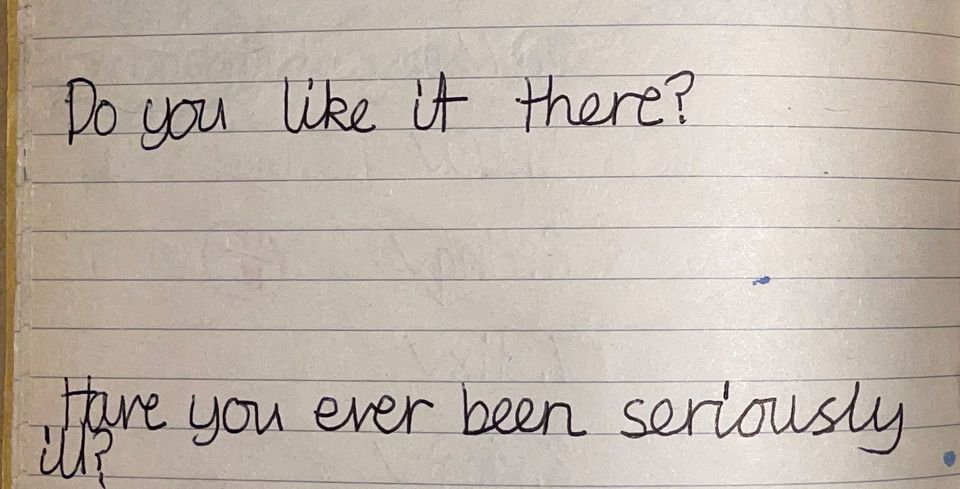 Do you like it there?
Have you ever been seriously
ill?